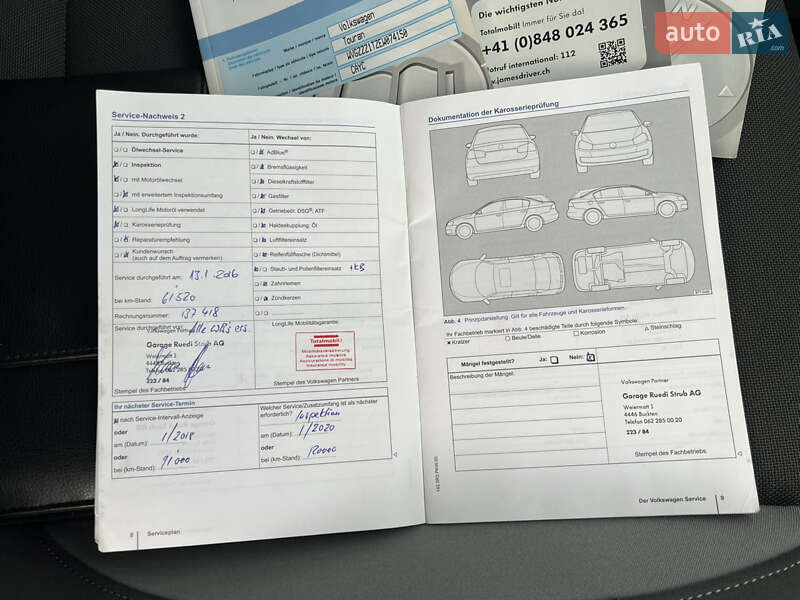 Volkswagen
Touran
WVGZZZ1TZEW074150
CAYC
Die wichtigsten
Totalmobil! Immer für Sie da!
+41 (0)848 024 365
Notruf international: 112
www.jamesdriver.ch
auto RIA
.com
Service-Nachweis 2
Ja / Nein. Durchgeführt wurde:
Ja / Nein. Wechsel von:
Ölwechsel-Service
AdBlue®
Inspektion
Bremsflüssigkeit
mit Motorölwechsel
Dieselkraftstofffilter
mit erweitertem Inspektionsumfang
Gasfilter
LongLife Motoröl verwendet
Getriebeöl: DSG®, ATF
Karosserieprüfung
Haldexkupplung: Öl
Reparaturempfehlung
Luftfiltereinsatz
Kundenwunsch
(auch auf dem Auftrag vermerken)
Reifenfüllflasche (Dichtmittel)
Service durchgeführt am: 13.1.2016
Staub- und Pollenfiltereinsatz
Zahnriemen
bei km-Stand: 61520
Zündkerzen
Rechnungsnummer: 137418
Service durchgeführt von:
LongLife Mobilitätsgarantie:
Volkswagen Partner
Garage Ruedi Strub AG
Weiermatt 1
4446 Buckten
Telefon 062 285 00 20
223 / 84
Totalmobil!
Mobilitätsversicherung
Assurance mobilité
Assicurazione di mobilità
Insurance mobility
Stempel des Fachbetriebs
Stempel des Volkswagen Partners
Ihr nächster Service-Termin
nach Service-Intervall-Anzeige
oder
am (Datum): 1/2018
oder
bei (km-Stand): 91000
Welcher Service/Zusatzumfang ist als nächster
erforderlich? Inspektion
am (Datum): 1/2020
oder
bei (km-Stand):
8 Serviceplan
Dokumentation der Karosserieprüfung
Abb. 4 Prinzipdarstellung: Gilt für alle Fahrzeuge und Karosserieformen.
Ihr Fachbetrieb markiert in Abb. 4 beschädigte Teile durch folgende Symbole:
× Kratzer ○ Beule/Delle □ Korrosion △ Steinschlag
Mängel festgestellt? Ja: Nein:
Beschreibung der Mängel:
Volkswagen Partner
Garage Ruedi Strub AG
Weiermatt 1
4446 Buckten
Telefon 062 285 00 20
223 / 84
Stempel des Fachbetriebs
Der Volkswagen Service 9